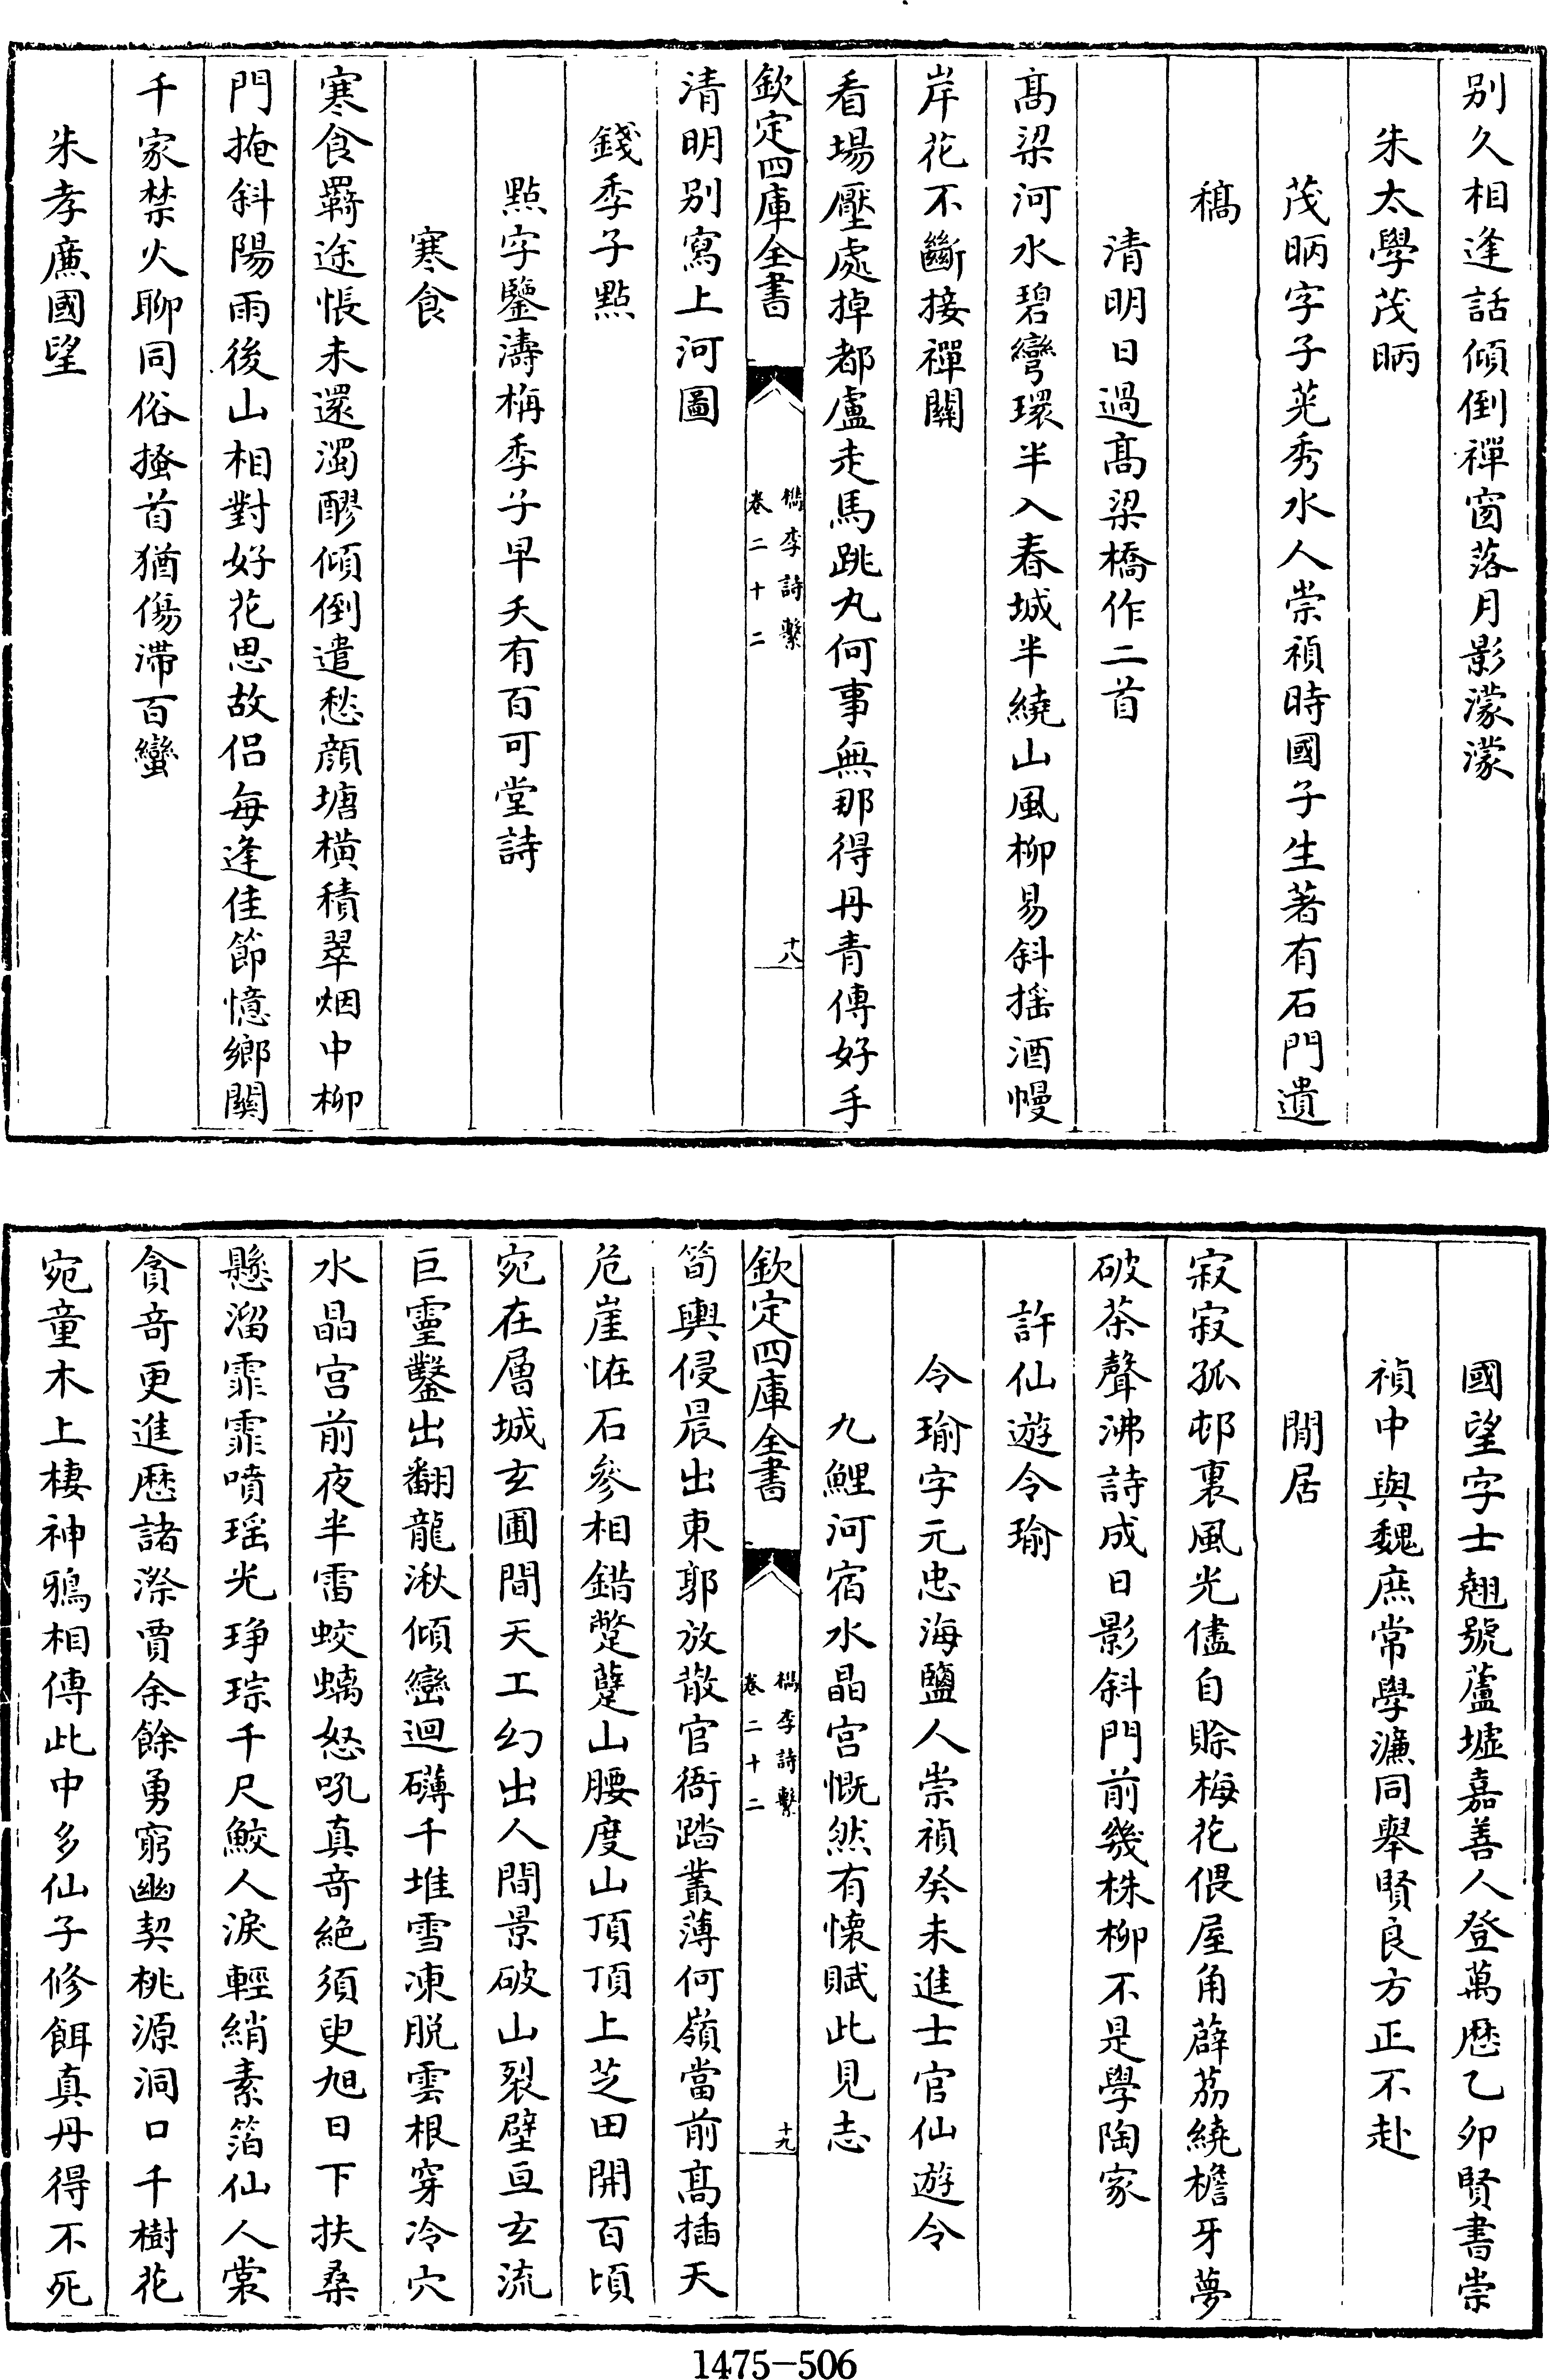 别久相逢話傾倒禪窗落月影濛濛
朱太學茂昞
茂昞字子莌秀水人崇禎時國子生著有石門遺
稿
清明日過高梁橋作二首
高梁河水碧彎環半入春城半繞山風柳易斜揺酒幔
岸花不斷接禪關
看場壓處掉都盧走馬跳丸何事無那得丹青傳好手
欽定四庫全書
檇李詩繫
卷二十二
十八
清明别寫上河圖
錢季子㸃
㸃字鑒濤梅季子早夭有百可堂詩
寒食
寒食羈途悵未還濁醪傾倒遣愁顔塘橫積翠烟中柳
門掩斜陽雨後山相對好花思故侣每逢佳節憶鄉關
千家禁火聊同俗搔首猶傷滯百蠻
朱孝亷國望
國望字士翹號蘆墟嘉善人登萬厯乙卯賢書崇
禎中與魏庶常學濂同舉賢良方正不赴
閒居
寂寂孤邨裏風光儘自賒梅花偎屋角薜荔繞檐牙夢
破茶聲沸詩成日影斜門前幾株柳不是學陶家
許仙遊令瑜
令瑜字元忠海鹽人崇禎癸未進士官仙遊令
九鯉河宿水晶宫慨然有懷賦此見志
欽定四庫全書
檇李詩繫
卷二十二
十九
筍輿侵晨出東郭放散官衙踏叢薄何嶺當前髙插天
危崖恠石參相錯蹩躠山腰度山頂頂上芝田開百頃
宛在層城玄圃間天工幻出人間景破山裂壁亘玄流
巨靈鑿出翻龍湫傾巒迴礴千堆雪凍脱雲根穿冷穴
水晶宫前夜半雷蛟螭怒吼真竒絶須臾旭日下扶桑
懸溜霏霏噴瑶光琤琮千尺鮫人淚輕綃素箔仙人裳
貪竒更進歴諸漈賈余餘勇窮幽契桃源洞口千樹花
宛童木上棲神鴉相傳此中多仙子修餌真丹得不死
1475-506